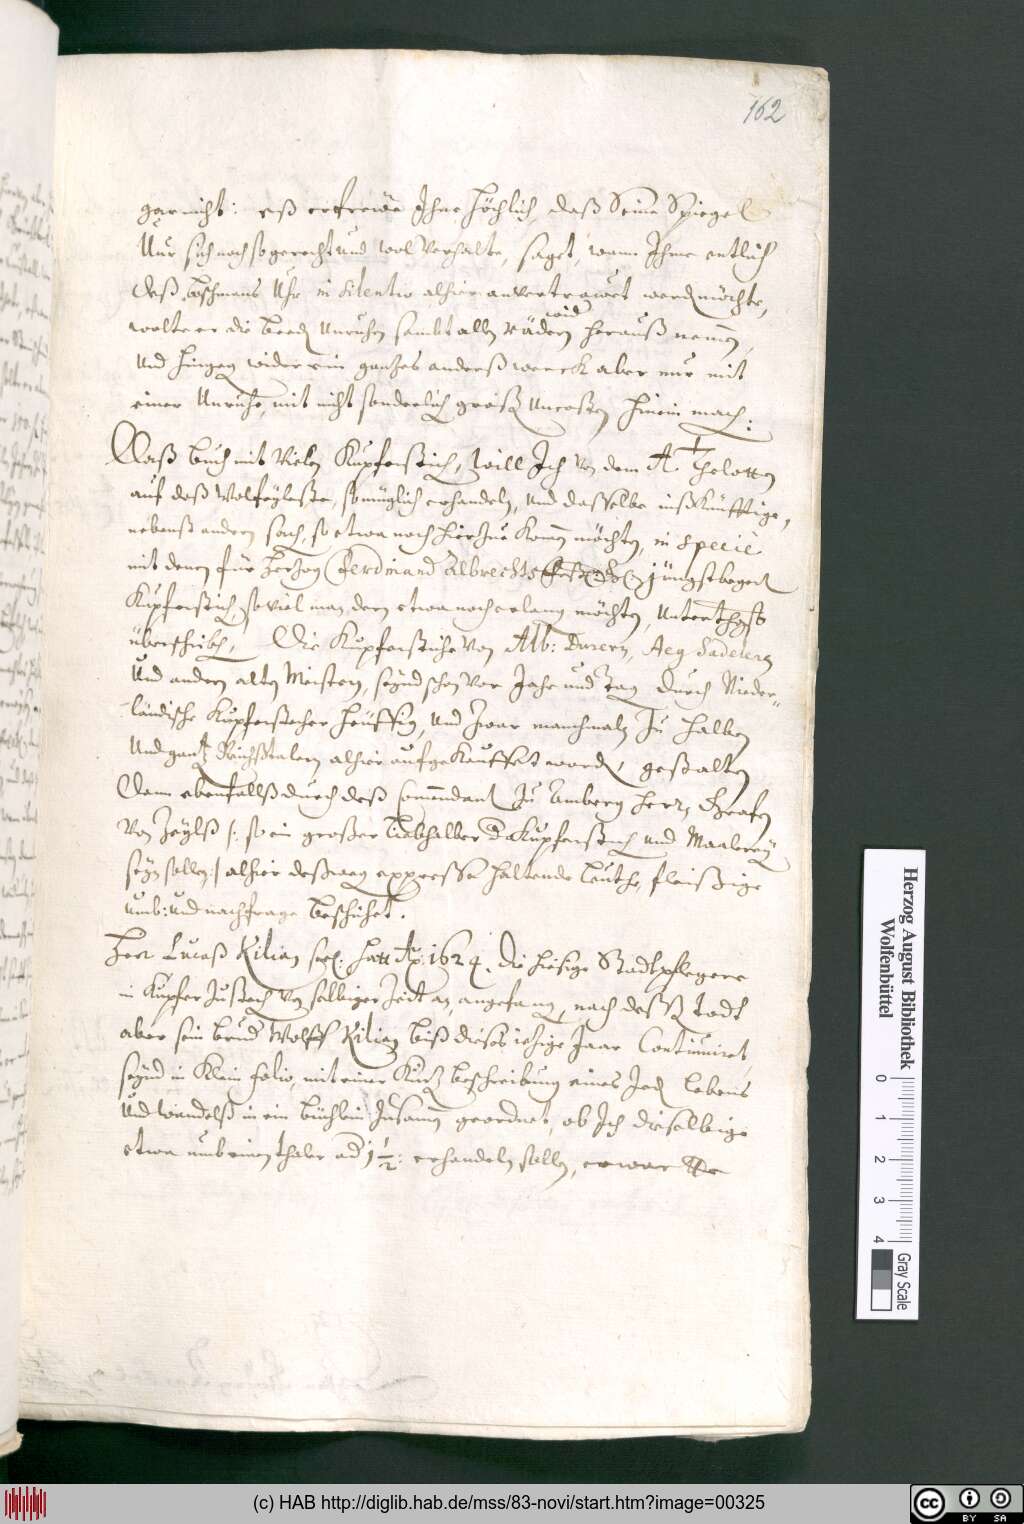 162
gar nicht: eß erfrewe Ihne höchlich, daß Seine Spiegel
Uhr sich noch so gerecht und wol verhalte, saget, wann Ihme entlich
deß Buschmans Uhr in silentio alhier anvertrawet werden möchte,
wolte er die beede Unruhen sambt allen Rädern herauß nemmen,
und hingegen wider ein ganzes anderß werck aber nur mit
einer Unruhe, mit nicht sonderlich großen Uncosten hinein machen:
Daß buch mit vielen Kupferstichen, will Ich von dem A Thelotten
auf deß wolfeyleste, so müglich erhandeln, und dasselbe inß künfftige,
nebenß andern sachen, so etwa noch hierzue kommen möchten, in specie
mit denen für Herzog Ferdinand Albrechts jüngst begerten
Kupferstichen, so viel man deren etwa noch erlangen möchten, unterthgst
überschickhen, Die Kupferstiche von Alb: Durern, Aeg Sadelern
und andern alten Meistern, seynd schon vor Jahr und Tag durch Nieder-
ländische Kupferstecher heüffig, und zwar manchmaln zu halben
und gantzen Reichßtalern alhier aufgekauffet worden, gestalten
dann ebenfallß durch deß Commendanten zu Amberg Herrn Grafen
von Zeylß /: so ein großer Liebhaber Kupferstich und Maalerey
seyn sollen:/ alhier deßwegen expresse haltende Leüthe, fleißige
umb: und nachfrage beschihet.
Herr Lucaß Kilian seel: hatt Ao. 1624. die hiesige Stadtpflegere
in Kupfer zustechen von selbiger Zeit an angefangen, nach deßen Todt
aber sein bruder Wolff Kilian biß dieses iezige Jaar Continuiret,
seynd in Klein folio mit einer Kurzen beschreibung eines Jeden Lebens
und wandelß in ein büchlein zusammen geordnet, ob Ich dieselbige
etwa umb einen thaler ad 1 1/2: erhandeln sollen, erwartte
Herzog August Bibliothek
Wolfenbüttel
0 1 2 3 4
Gray Scale
(c) HAB http://diglib.hab.de/mss/83-novi/start.htm?image=00325
cc BY SA